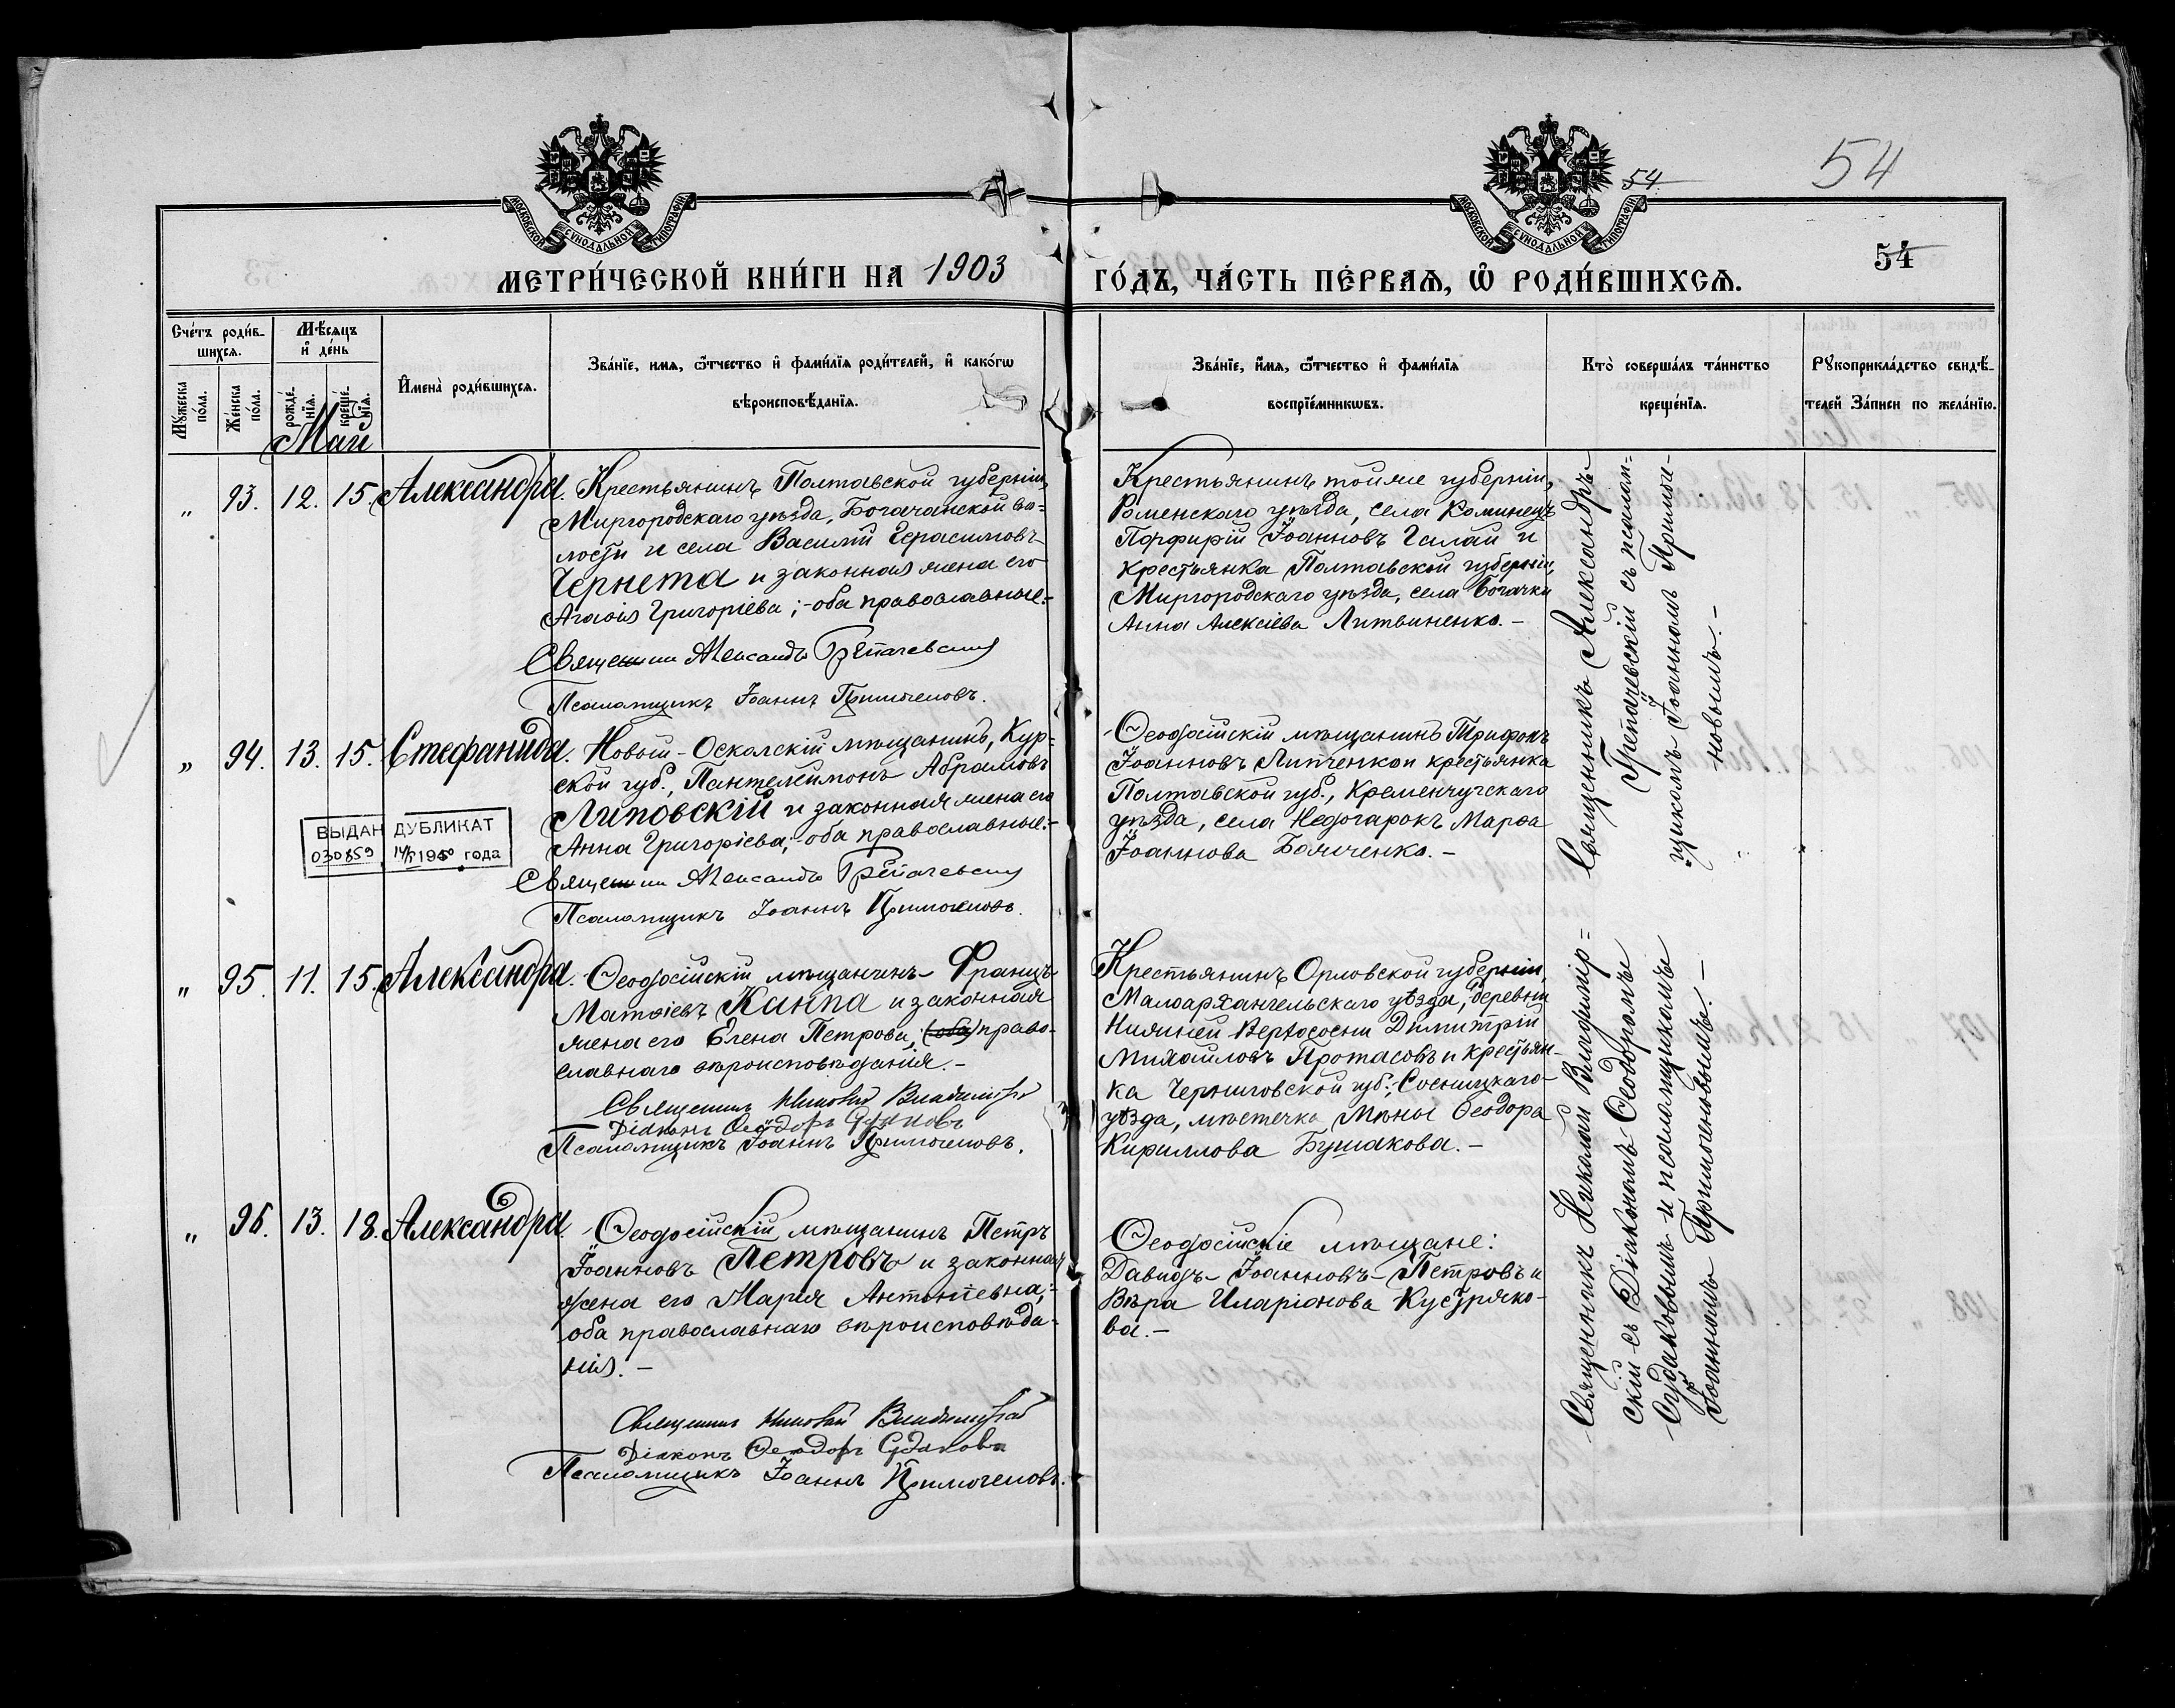 54
54
54
МОСКОВСКОЙ СѴНОДАЛЬНОЙ ТИПОГРАФІИ
МОСКОВСКОЙ СѴНОДАЛЬНОЙ ТИПОГРАФІИ
МЕТРИ́ЧЕСКОЙ КНИ́ГИ НА 1903 ГО́ДЪ, ЧА́СТЬ ПЕ́РВАѦ, Ѽ РОДИ́ВШИХСѦ.
Сче́тъ роди́в-
шихся.
Мѣ́сяцъ
и҆ де́нь
Мꙋ́жеска
по́ла.
Же́нска
по́ла.
рожде́-
нїя.
креще́-
нїя.
И҆мена̀ роди́вшихся.
Зва́нїе, имя, ѻ҆́тчество и҆ фами́лїя роди́телей, и҆ како́гѡ
вѣроисповѣ́данїя.
Зва́нїе, и҆́мя, ѻ҆́тчество и҆ фами́лїя
воспрїе́мникѡвъ.
Кто̀ соверша́лъ та́инство
креще́нїя.
Рꙋкоприкла́дство свидѣ́-
телей За́писи по жела́нїю.
Май
„ 93. 12. 15. Александра. Крестьянинъ Полтавской губерніи,
Миргородскаго уѣзда, Богачанской во-
лости и села Василій Герасимовъ
Чернета и законная жена его
Агаѳія Григоріева; - оба православные.-
Священникъ Александръ Грепачевскій
Псаломщикъ Іоаннъ Примоченовъ.
Крестьянинъ тойже губерніи,
Роменскаго уѣзда, села Коминецъ
Порфирій Іоанновъ Галай и
крестьянка Полтавской губерніи,
Миргородскаго уѣзда, села Богачки
Анна Алексіева Литвиненко. -
Священникъ Александръ
Грепачевскій съ псалом-
щикомъ Іоанномъ Примоче-
новымъ. -
„ 94. 13. 15. Стефанида. Новый-Осколскій мѣщанинъ, Кур-
ской губ., Пантелеимонъ Абрамовъ
Липовскій и законная жена его
Анна Григоріева; - оба православные.-
Священникъ Александръ Грепачевскій
Псаломщикъ Іоаннъ Примоченовъ.
ВЫДАН ДУБЛИКАТ
030859 1950 года
Ѳеодосійскій мѣщанинъ Трифонъ
Іоанновъ Липченко и крестьянка
Полтавской губ., Кременчугскаго
уѣзда, села Недогарокъ Марѳа
Іоаннова Божченко. -
„ 95. 11. 15. Александра. Ѳеодосійскій мѣщанинъ Францъ
Матѳіевъ Канпа и законная
жена его Елена Петрова; (оба) право-
славнаго вѣроисповѣданія. -
Священникъ Николай Владимірскій
Діаконъ Ѳеодоръ Судаковъ
Псаломщикъ Іоаннъ Примоченовъ.
Крестьянинъ Орловской губерніи,
Малоархангельскаго уѣзда, деревни
Нижней Вертососни Димитрій
Михайловъ Протасовъ и крестьян-
ка Черниговской губ., Сосницкаго
уѣзда, мѣстечка Мѣны Ѳеодора
Кириллова Бушакова. -
Священникъ Николай Владимір-
скій съ Діакономъ Ѳеодоромъ
Судаковымъ и псаломщикомъ
Іоанномъ Примоченовымъ. -
„ 96. 13. 18. Александра. Ѳеодосійскій мѣщанинъ Петръ
Іоанновъ Петровъ и законная
жена его Марія Антоніевна; -
оба православнаго вѣроисповѣда-
нія. -
Священникъ Николай Владимірскій
Діаконъ Ѳеодоръ Судаковъ
Псаломщикъ Іоаннъ Примоченовъ.
Ѳеодосійскіе мѣщане:
Давидъ Іоанновъ Петровъ и
Вѣра Иларіонова Кустряко-
ва. -